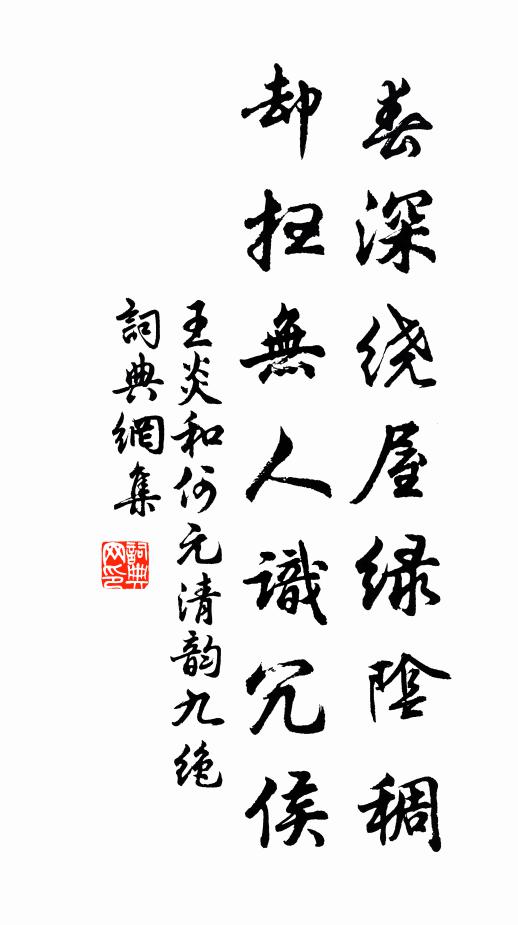 春深绕屋緑陰稠
却扫無人識冗侯
王炎和何元清韵九绝
詞典網集
詞典网印